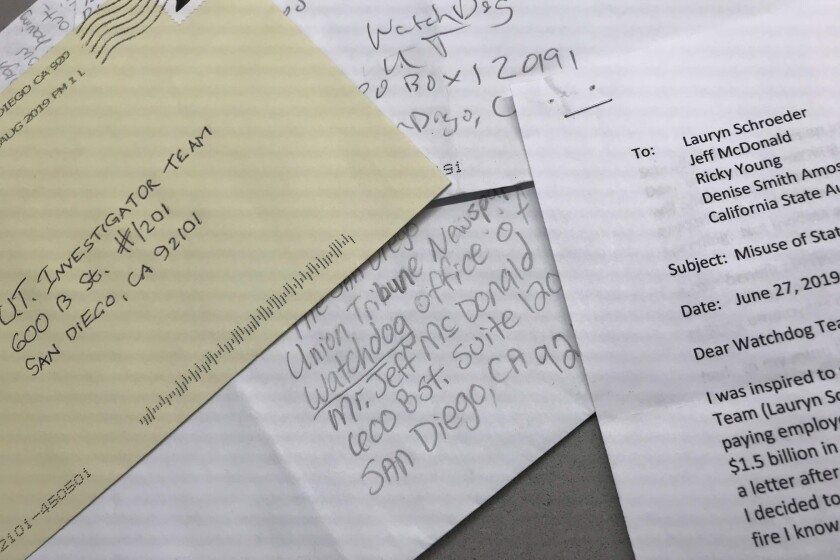 DIEGO CA 920
AUG 2019 PM 1 L
U.T. INVESTIGATOR TEAM
600 B St. #1201
SAN DIEGO, CA 92101
2101-450501
WatchDog
UT
PO BOX 120191
Diego, C
91
The San Diego
Union Tribune Newsp
Watchdog office of
Mr. Jeff McDonald
600 B St. Suite 120
SAN Diego, CA 92
To: Lauryn Schroeder
Jeff McDonald
Ricky Young
Denise Smith Amos
California State Au
Subject: Misuse of Stat
Date: June 27, 2019
Dear Watchdog Tea
I was inspired to
Team (Lauryn Sc
paying employe
$1.5 billion in
a letter after
I decided to
fire I know